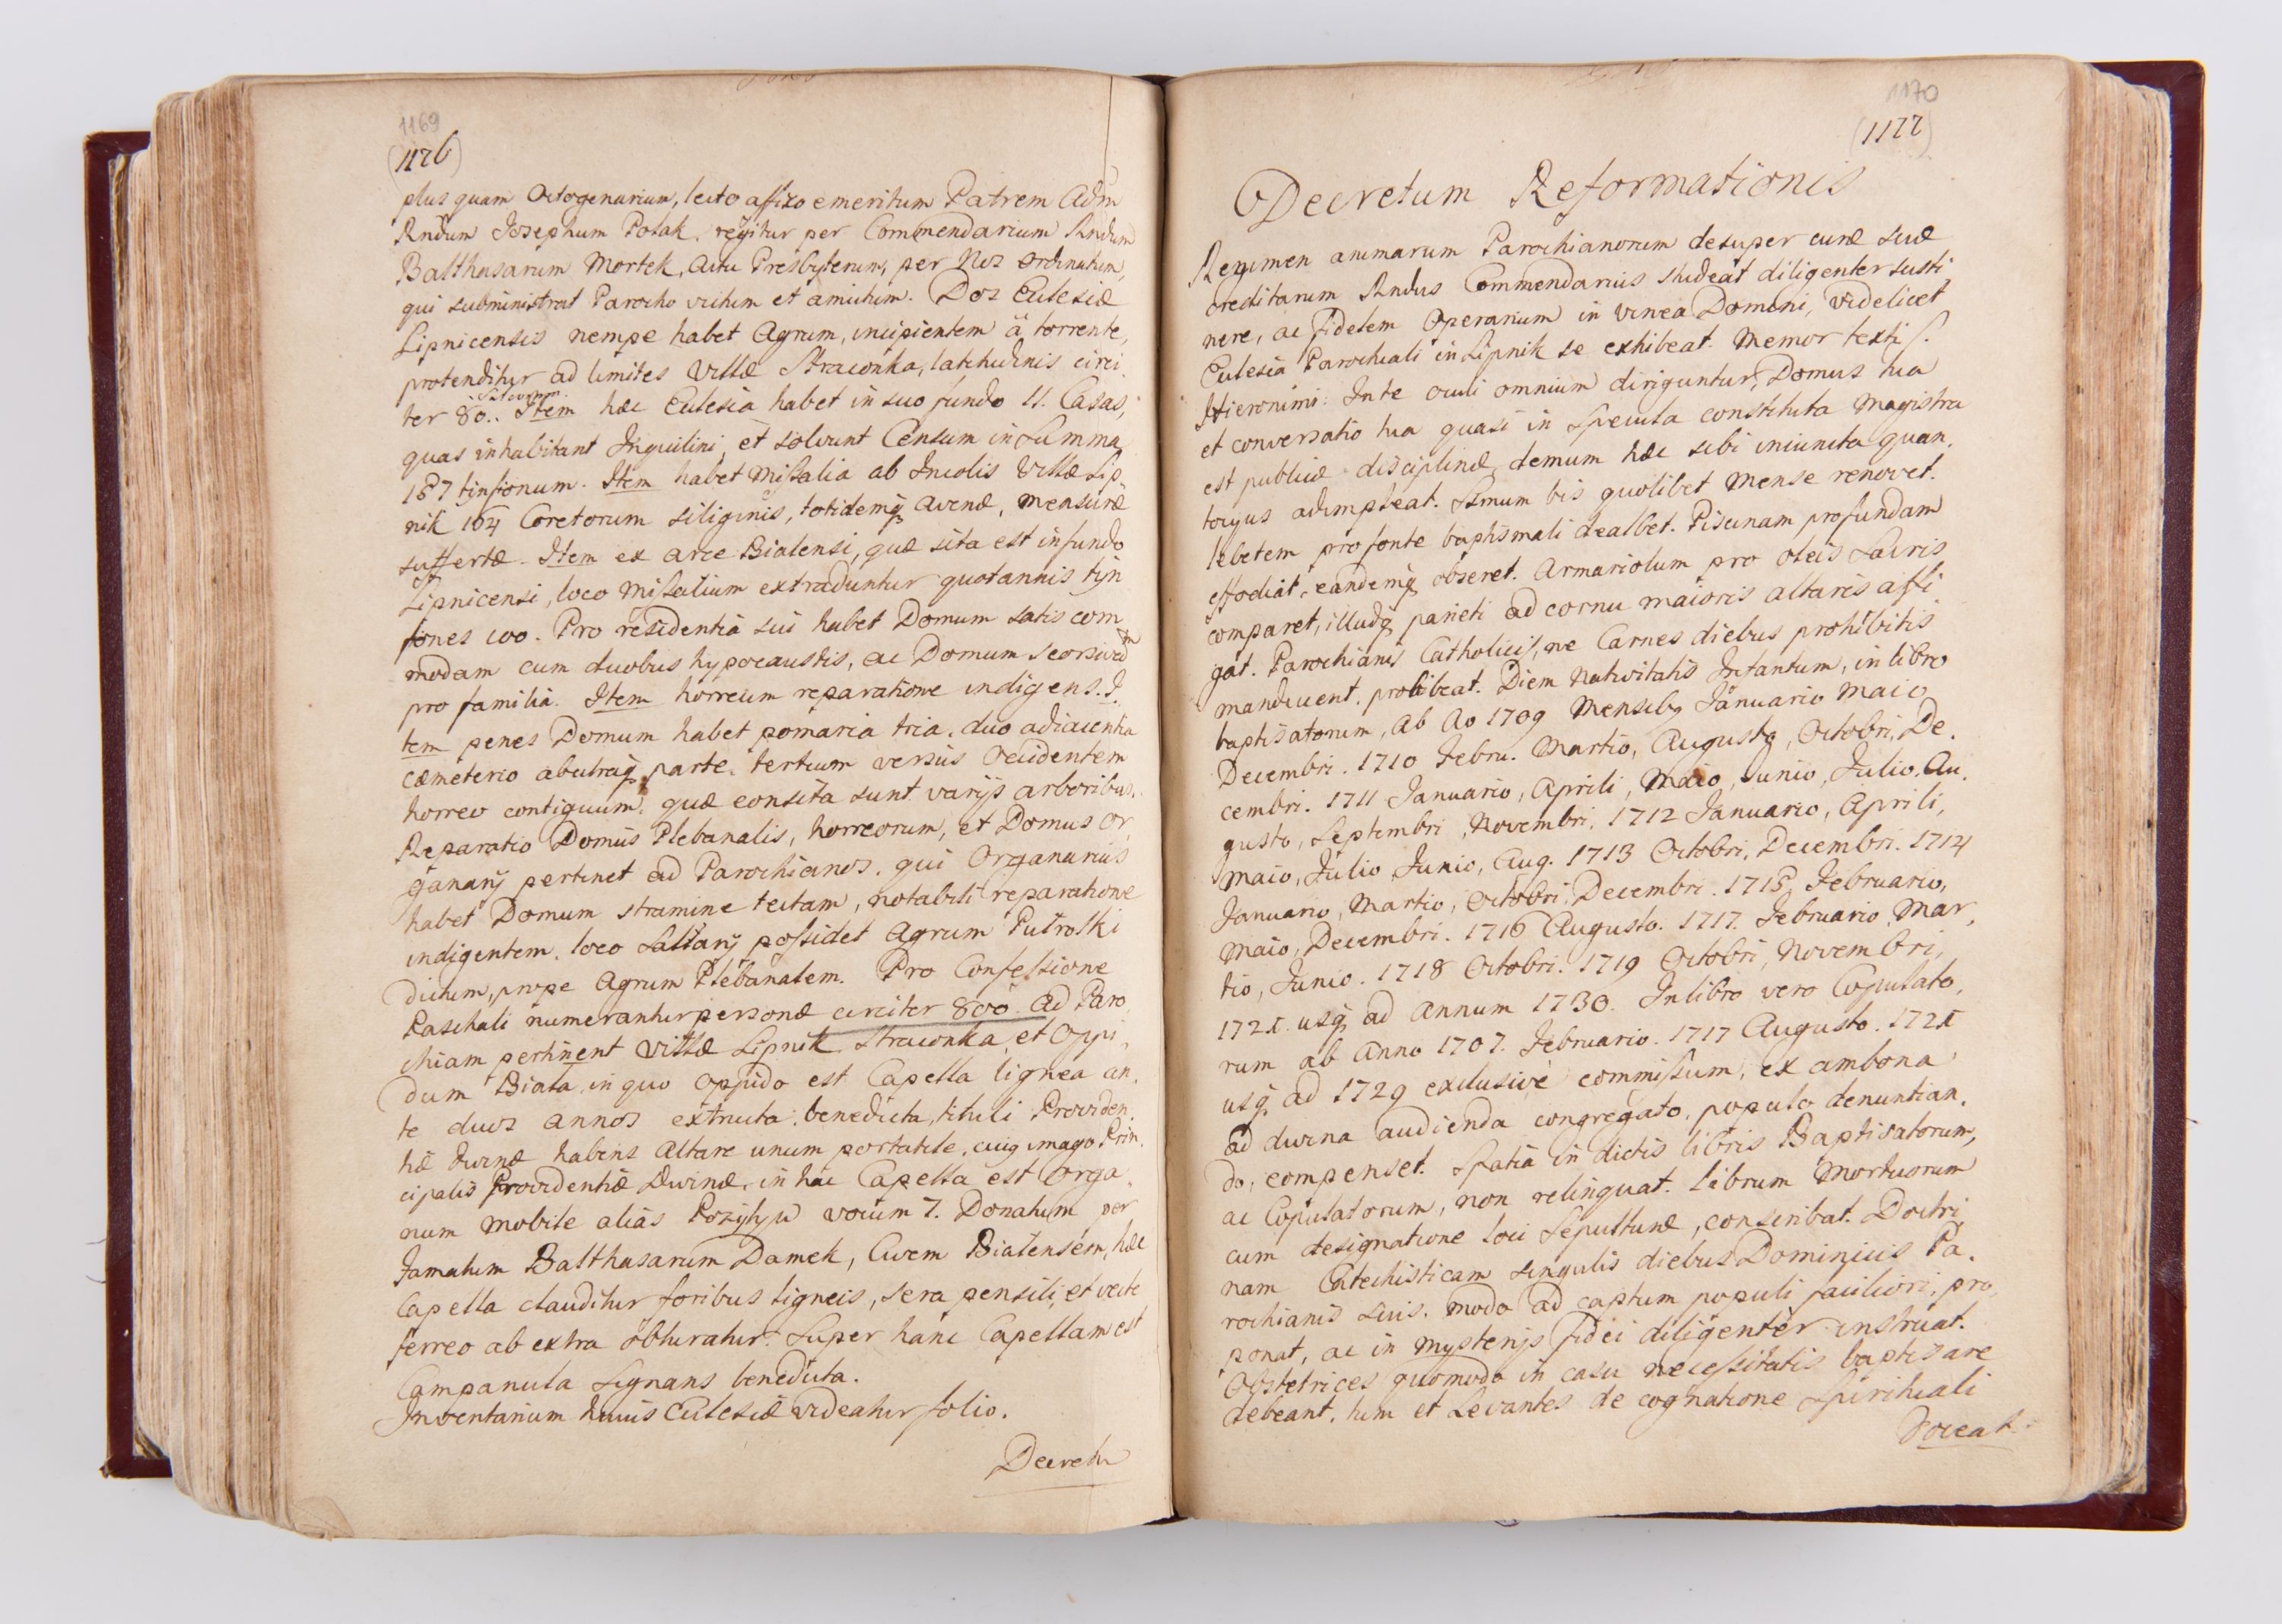 1169
(1176)
plus quam Octogenarium, lecto affixo emeritum Patrem Adm
Rndum Josephum Polak, regitur per Commendarium Rndum
Balthasarum Mortek, Actu Presbyterum, per Nos ordinatum,
qui subministrat Parocho victum et amictum. Dos Ecclesiæ
Lipnicensis nempe habet Agrum, incipientem à torrente,
protenditur ad limites Villæ Straconka, latitudinis circi
ter 80. Item hæc Ecclesia habet in suo fundo 11. Casas,
quas inhabitant Inquilini, et solvunt Censum in Summa
187 tinfonum. Item habet Missalia ab Incolis Villæ Lip,
nik 164 Coretorum siliginis, totidemq avenæ, mensuræ
suffertæ. Item ex arce Bialensi, quæ sita est in fundo
Lipnicensi, loco Missalium extraduntur quotannis tyn
fones 100. Pro residentia sui habet Domum satis com
modam cum duobus hypocaustis, ac Domum seorsivam
pro familia. Item horreum reparatione indigens. I.
tem penes Domum habet pomaria tria, duo adiacentia
cæmeterio ab utraq parte, tertium versus Occidentem
horreo contiguum, quæ consita sunt varijs arboribus.
Reparatio Domus Plebanalis, horreorum, et Domus Or,
ganarij pertinet ad Parochianos, qui Organarius
habet Domum stramine tectam, notabili reparatione
indigentem, loco Sallarij possidet Agrum Putroski
dictum, prope Agrum Plebanalem. Pro Confessione
Paschali numerantur personæ circiter 800. Ad Paro
chiam pertinent Villæ Lipnik Straconka, et Oppi,
dum Biala, in quo Oppido est Capella lignea an,
te duos annos extructa, benedicta, tituli Providen,
tiæ Divinæ habens Altare unum portatile, cuiq imago Prin,
cipalis Providentiæ Divinæ, in hac Capella est Orga,
num mobile aliàs Pozijtyw vocum 7. Donatum per
Famatum Balthasarum Damek, Civem Bialensem, hæc
Capella clauditur foribus ligneis, sera pensili, et vecte
ferreo ab extra obturatur. Super hanc Capellam est
Campanula Signans benedicta.
Inventarium huius Ecclesiæ videatur folio.
Decretu
1170
(1177)
Decretum Reformationis
Regimen animarum Parochianorum desuper curæ suæ
creditarum Rndus Commendarius studeat diligenter susti
nere, ac fidelem Operarium in vinea Domini, videlicet
Ecclesia Parochiali in Lipnik se exhibeat. Memor texti S.
Hieronimi: In te oculi omnium diriguntur, Domus tua
et conversatio tua quasi in Specula constituta Magistra
est publicæ disciplinæ, demum hæc sibi iniuncta quan,
tocyus adimpleat. Ssmum bis quolibet Mense renovet.
lebetem pro fonte baptismali dealbet. Piscinam profundam
effodiat, eandemq obseret. Armariolum pro oleis Sacris
comparet, illudq parieti ad cornu maioris altaris affi,
gat. Parochianis Catholicis, ne Carnes diebus prohibitis
manducent, prohibeat. Diem Nativitatis Infantum, in libro
baptisatorum, ab Ao 1709 Mensibq Januario Maio
Decembri. 1710 Febru. Martio, Augusto, Octobri, De.
cembri. 1711 Januario, Aprili, Maio, Junio, Julio. Au.
gusto, Septembri, Novembri. 1712 Januario, Aprili,
Maio, Julio, Junio, Aug. 1713 Octobri, Decembri. 1714
Januario, Martio, Octobri, Decembri. 1715 Februario,
Maio, Decembri. 1716 Augusto. 1717. Februario, Mar,
tio, Junio. 1718 Octobri. 1719 Octobri, Novembri,
1721. usq ad annum 1730. In libro vero Copulato,
rum ab Anno 1707. Februario. 1717 Augusto. 1721
usq ad 1729 exclusivè commissum, ex ambona
ad divina audienda congregato, populo denuntian,
do, compenset. Spatia in dictis libris Baptisatorum,
ac Copulatorum, non relinquat. Librum Mortuorum
cum designatione loci Sepulturæ, conscribat. Doctri,
nam Catechisticam singulis diebus Dominicis Pa,
rochianis suis, modo ad captum populi faciliori, pro,
ponat, ac in Mysterijs fidei diligenter instruat.
Obstetrices quomodo in casu necessitatis baptisare
debeant, tum et Levantes de cognatione Spirituali
doceat